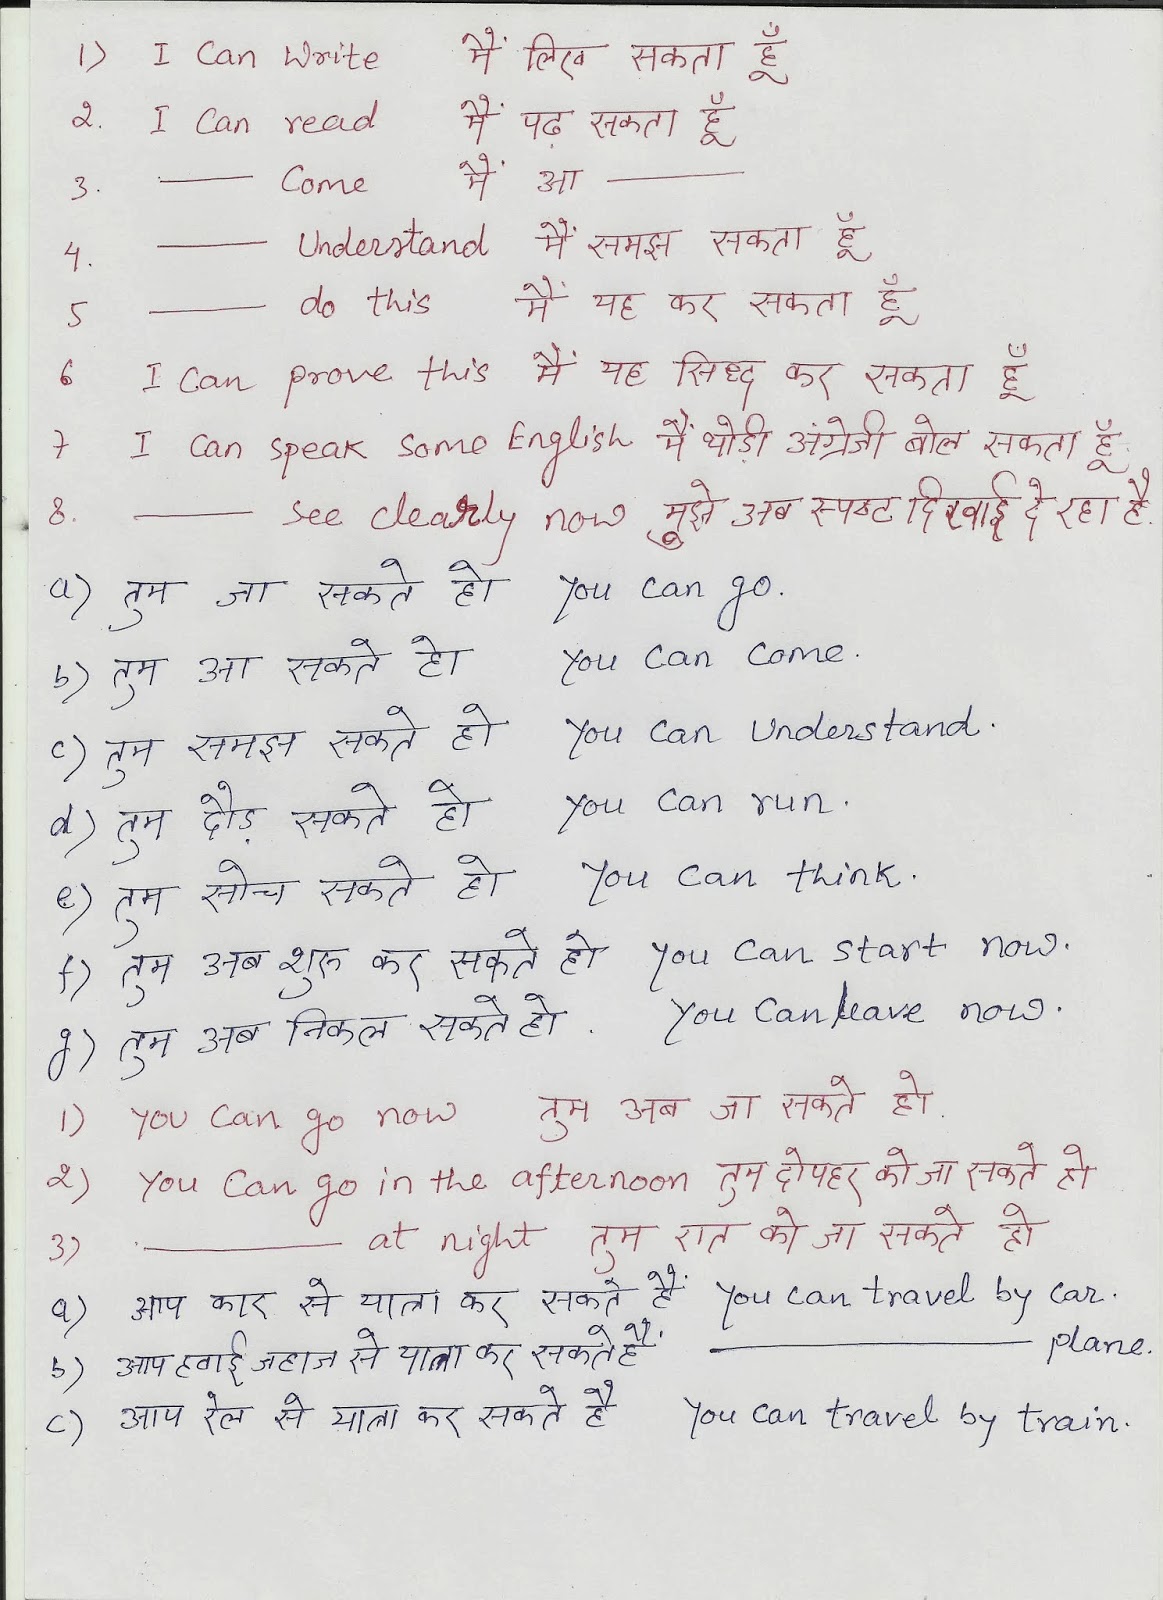 1) I Can Write मैं लिख सकता हूँ
2. I Can read मैं पढ़ सकता हूँ
3. —— Come मैं आ ——
4. —— Understand मैं समझ सकता हूँ
5 —— do this मैं यह कर सकता हूँ
6 I can prove this मैं यह सिध्द कर सकता हूँ
7 I can speak some English मैं थोड़ी अंग्रेजी बोल सकता हूँ.
8. —— see clearly now मुझे अब स्पष्ट दिखाई दे रहा है.
a) तुम जा सकते हो You can go.
b) तुम आ सकते हो You can come.
c) तुम समझ सकते हो You can understand.
d) तुम दौड़ सकते हो You can run.
e) तुम सोच सकते हो You can think.
f) तुम अब शुरू कर सकते हो You can start now.
g) तुम अब निकल सकते हो. You can leave now.
1) You can go now तुम अब जा सकते हो.
2) You can go in the afternoon तुम दोपहर को जा सकते हो
3) —— at night तुम रात को जा सकते हो
a) आप कार से यात्रा कर सकते हैं You can travel by car.
b) आप हवाई जहाज से यात्रा कर सकते हैं —— plane.
c) आप रेल से यात्रा कर सकते है You can travel by train.